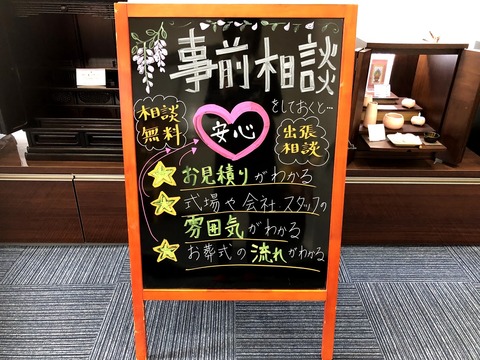 事前相談
をしておくと…
相談
無料
安心
出張
相談
お見積りがわかる
式場や会社スタッフの
雰囲気がわかる
お葬式の流れがわかる